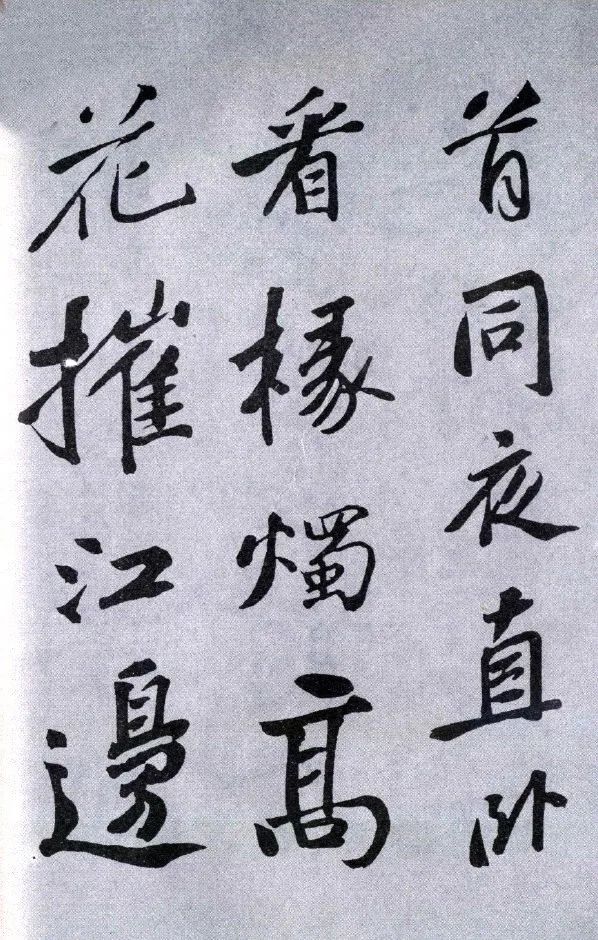 首同夜直卧
看椽燭高
花摧江邊